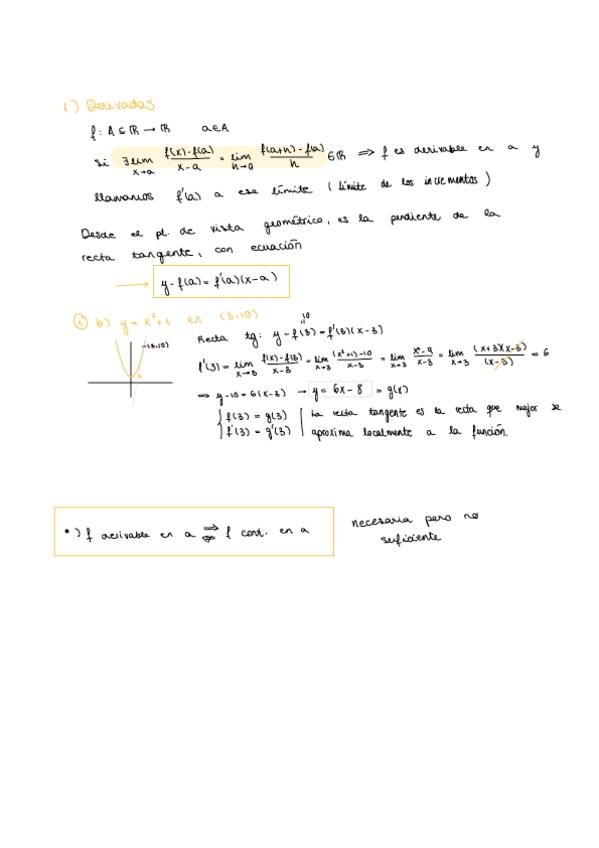 1) Derivadas
f: A ⊆ ℝ → ℝ a∈A
Si ∃ lim x→a f(x)-f(a)/x-a = lim h→0 f(a+h)-f(a)/h ∈ℝ ⇒ f es derivable en a y
llamamos f'(a) a ese límite (límite de los incrementos)
Desde el pt. de vista geométrico, es la pendiente de la
recta tangente, con ecuación
→ y-f(a)=f'(a)(x-a)
① b) y = x²+1 en (3,10)
Recta tg: y-f(3)=f'(3)(x-3)
10
(3,10)
f'(3) = lim x→3 f(x)-f(3)/x-3 = lim x→3 (x²+1)-10/x-3 = lim x→3 x²-9/x-3 = lim x→3 (x+3)(x-3)/(x-3) = 6
⇒ y-10=6(x-3) → y= 6x-8 = g(x)
f(3) = g(3) La recta tangente es la recta que mejor se
f'(3) = g'(3) aproxima localmente a la función
•) f derivable en a ⇒ ⇍ f cont. en a
necesaria pero no
suficiente